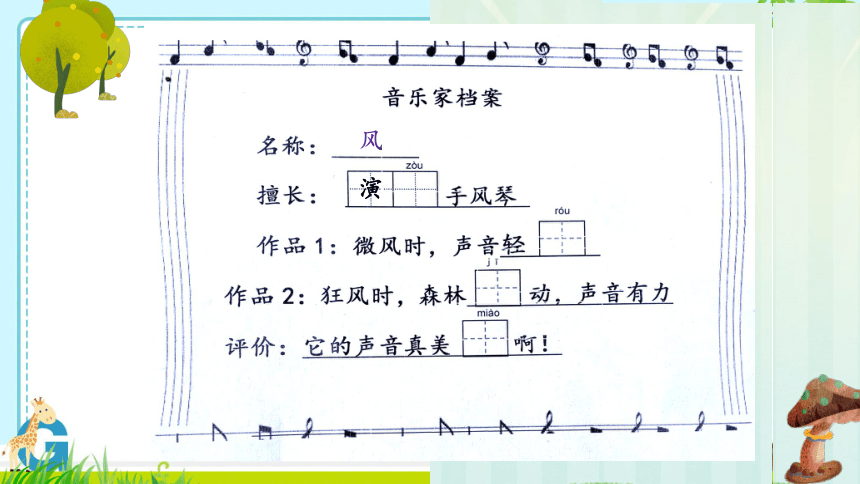 音乐家档案
名称：风
zòu
擅长：演 手风琴
róu
作品1：微风时，声音轻
jī
作品2：狂风时，森林 动，声音有力
miào
评价：它的声音真美 啊！
G